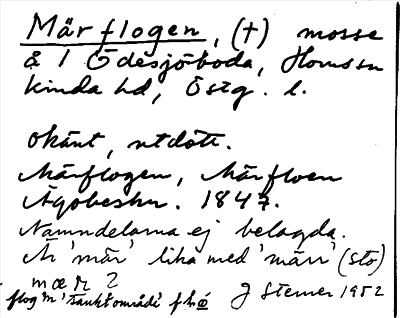 Märflogen, (†) mosse
å 1 Ödesjöboda, Hornssn
kinda hd, Östg. l.
okänt, utdött.
Märflogen, Märfloen
Ägobeskr. 1847.
Namndelarna ej belagda.
Är 'mär' lika med 'märr' (sto)
mær ?
flog 'n' 'sankt område' fl.o J Sterner 1952